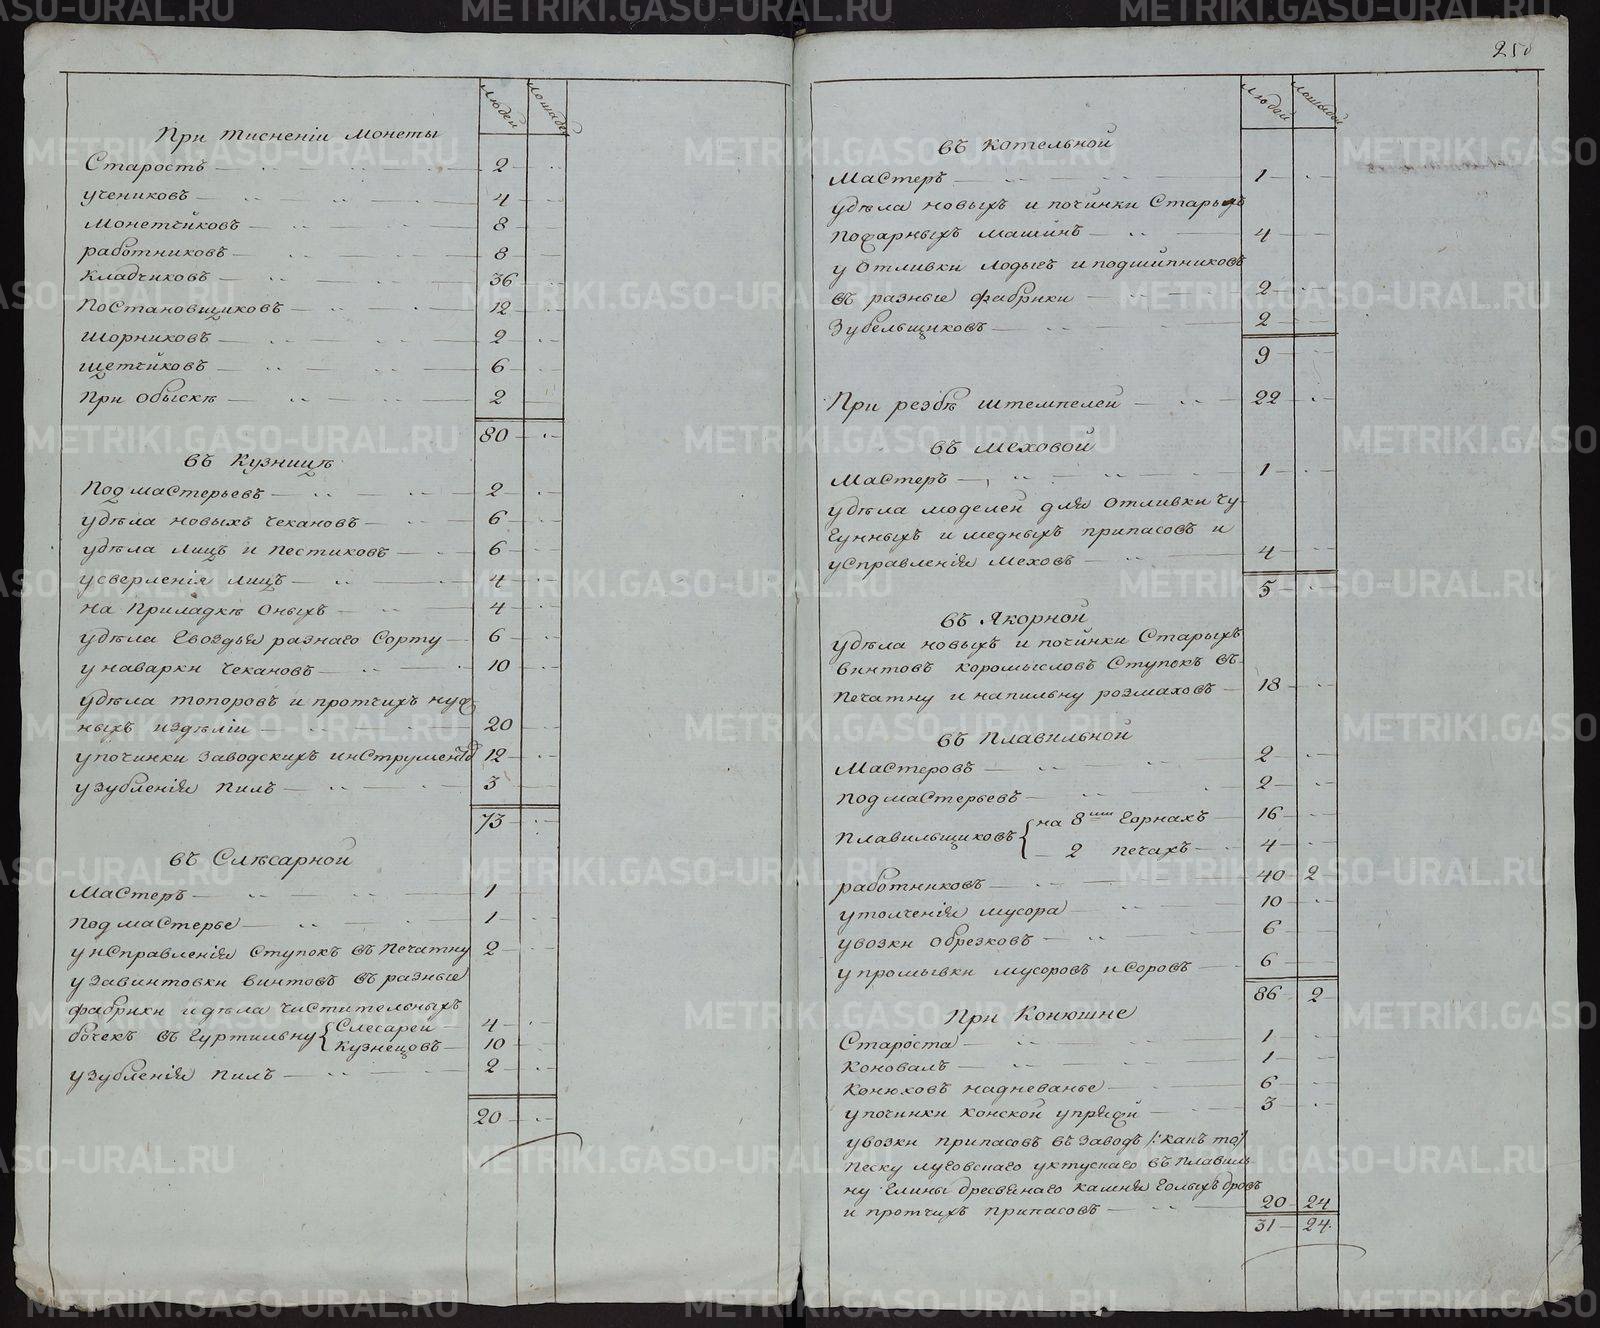 людей лошадей
При тиснении монеты
Старостъ 2
учениковъ 4
монетчиковъ 8
работниковъ 8
кладчиковъ 36
постановщиковъ 12
шорниковъ 2
щетчиковъ 6
при обыскѣ 2
80
въ Кузницѣ
подмастерьевъ 2
удѣла новыхъ чекановъ 6
удѣла лицъ и пестиковъ 6
усверления лицъ 4
на приладкѣ оныхъ 4
удѣла гвоздья разнаго сорту 6
у наварки чекановъ 10
удѣла топоровъ и протчихъ нуж
ныхъ издѣлiи 20
упочинки заводскихъ инструментовъ 12
у зубления пилъ 3
73
въ Слѣсарной
мастеръ 1
подмастерье 1
у исправления ступокъ въ печатну 2
у завинтовки винтовъ въ разные
фабрики и дѣла чистительныхъ
бочекъ въ гуртильну { слесарей 4
кузнецовъ 10
у зубления пилъ 2
20
250
людей лошадей
въ Котельной
мастеръ 1
удѣла новыхъ и починки старыхъ
пожарныхъ машинъ 4
у отливки лодыгъ и подшипниковъ
въ разные фабрики 2
Зубельщиковъ 2
9
При резбѣ штемпелей 22
въ меховой
мастеръ 1
удѣла моделей для отливки чу-
гунныхъ и медныхъ припасовъ и
управления меховъ 4
5
въ Якорной
удѣла новыхъ и починки старыхъ
винтовъ коромысловъ ступокъ въ
печатну и напильну розмаховъ 18
въ Плавильной
мастеровъ 2
подмастерьевъ 2
плавильщиковъ { на 8ми горнахъ 16
— 2 печахъ 4
работниковъ 40 2
утолчения мусора 10
увозки обрезковъ 6
у промывки мусоровъ и соровъ 6
86 2
При Конюшне
староста 1
коновалъ 1
конюховъ надневанье 6
упочинки конской упряжи 3
увозки припасовъ въ заводъ /: какъ то /
песку луговскаго уктускаго въ плавиль
ну глины дресвянаго камня голыхъ дровъ
и протчихъ припасовъ 20 24
31 24